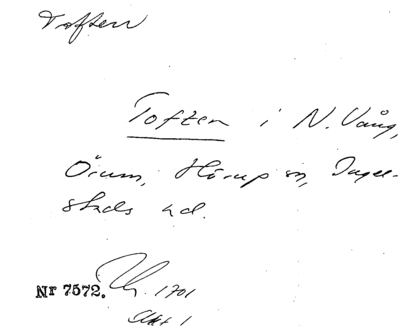 Toften
Toften i N. Vång,
Örum, Hörup sn, Ingel-
stads hd.
Nr 7572. 1701
Akt 1